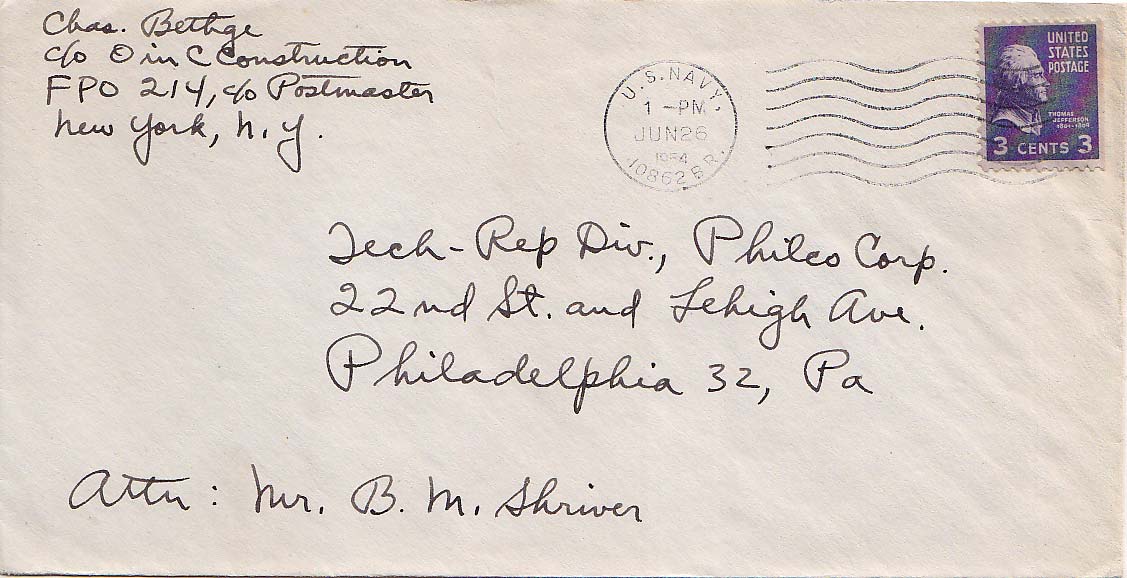 Chas. Bethge
c/o O in C Construction
FPO 214, c/o Postmaster
New York, N.Y.
U.S. NAVY,
1 -PM
JUN 26
1954
10862 BR.
UNITED
STATES
POSTAGE
THOMAS
JEFFERSON
1801-1809
3 CENTS 3
Tech-Rep Div., Philco Corp.
22nd St. and Lehigh Ave.
Philadelphia 32, Pa
Attn: Mr. B. M. Shriver